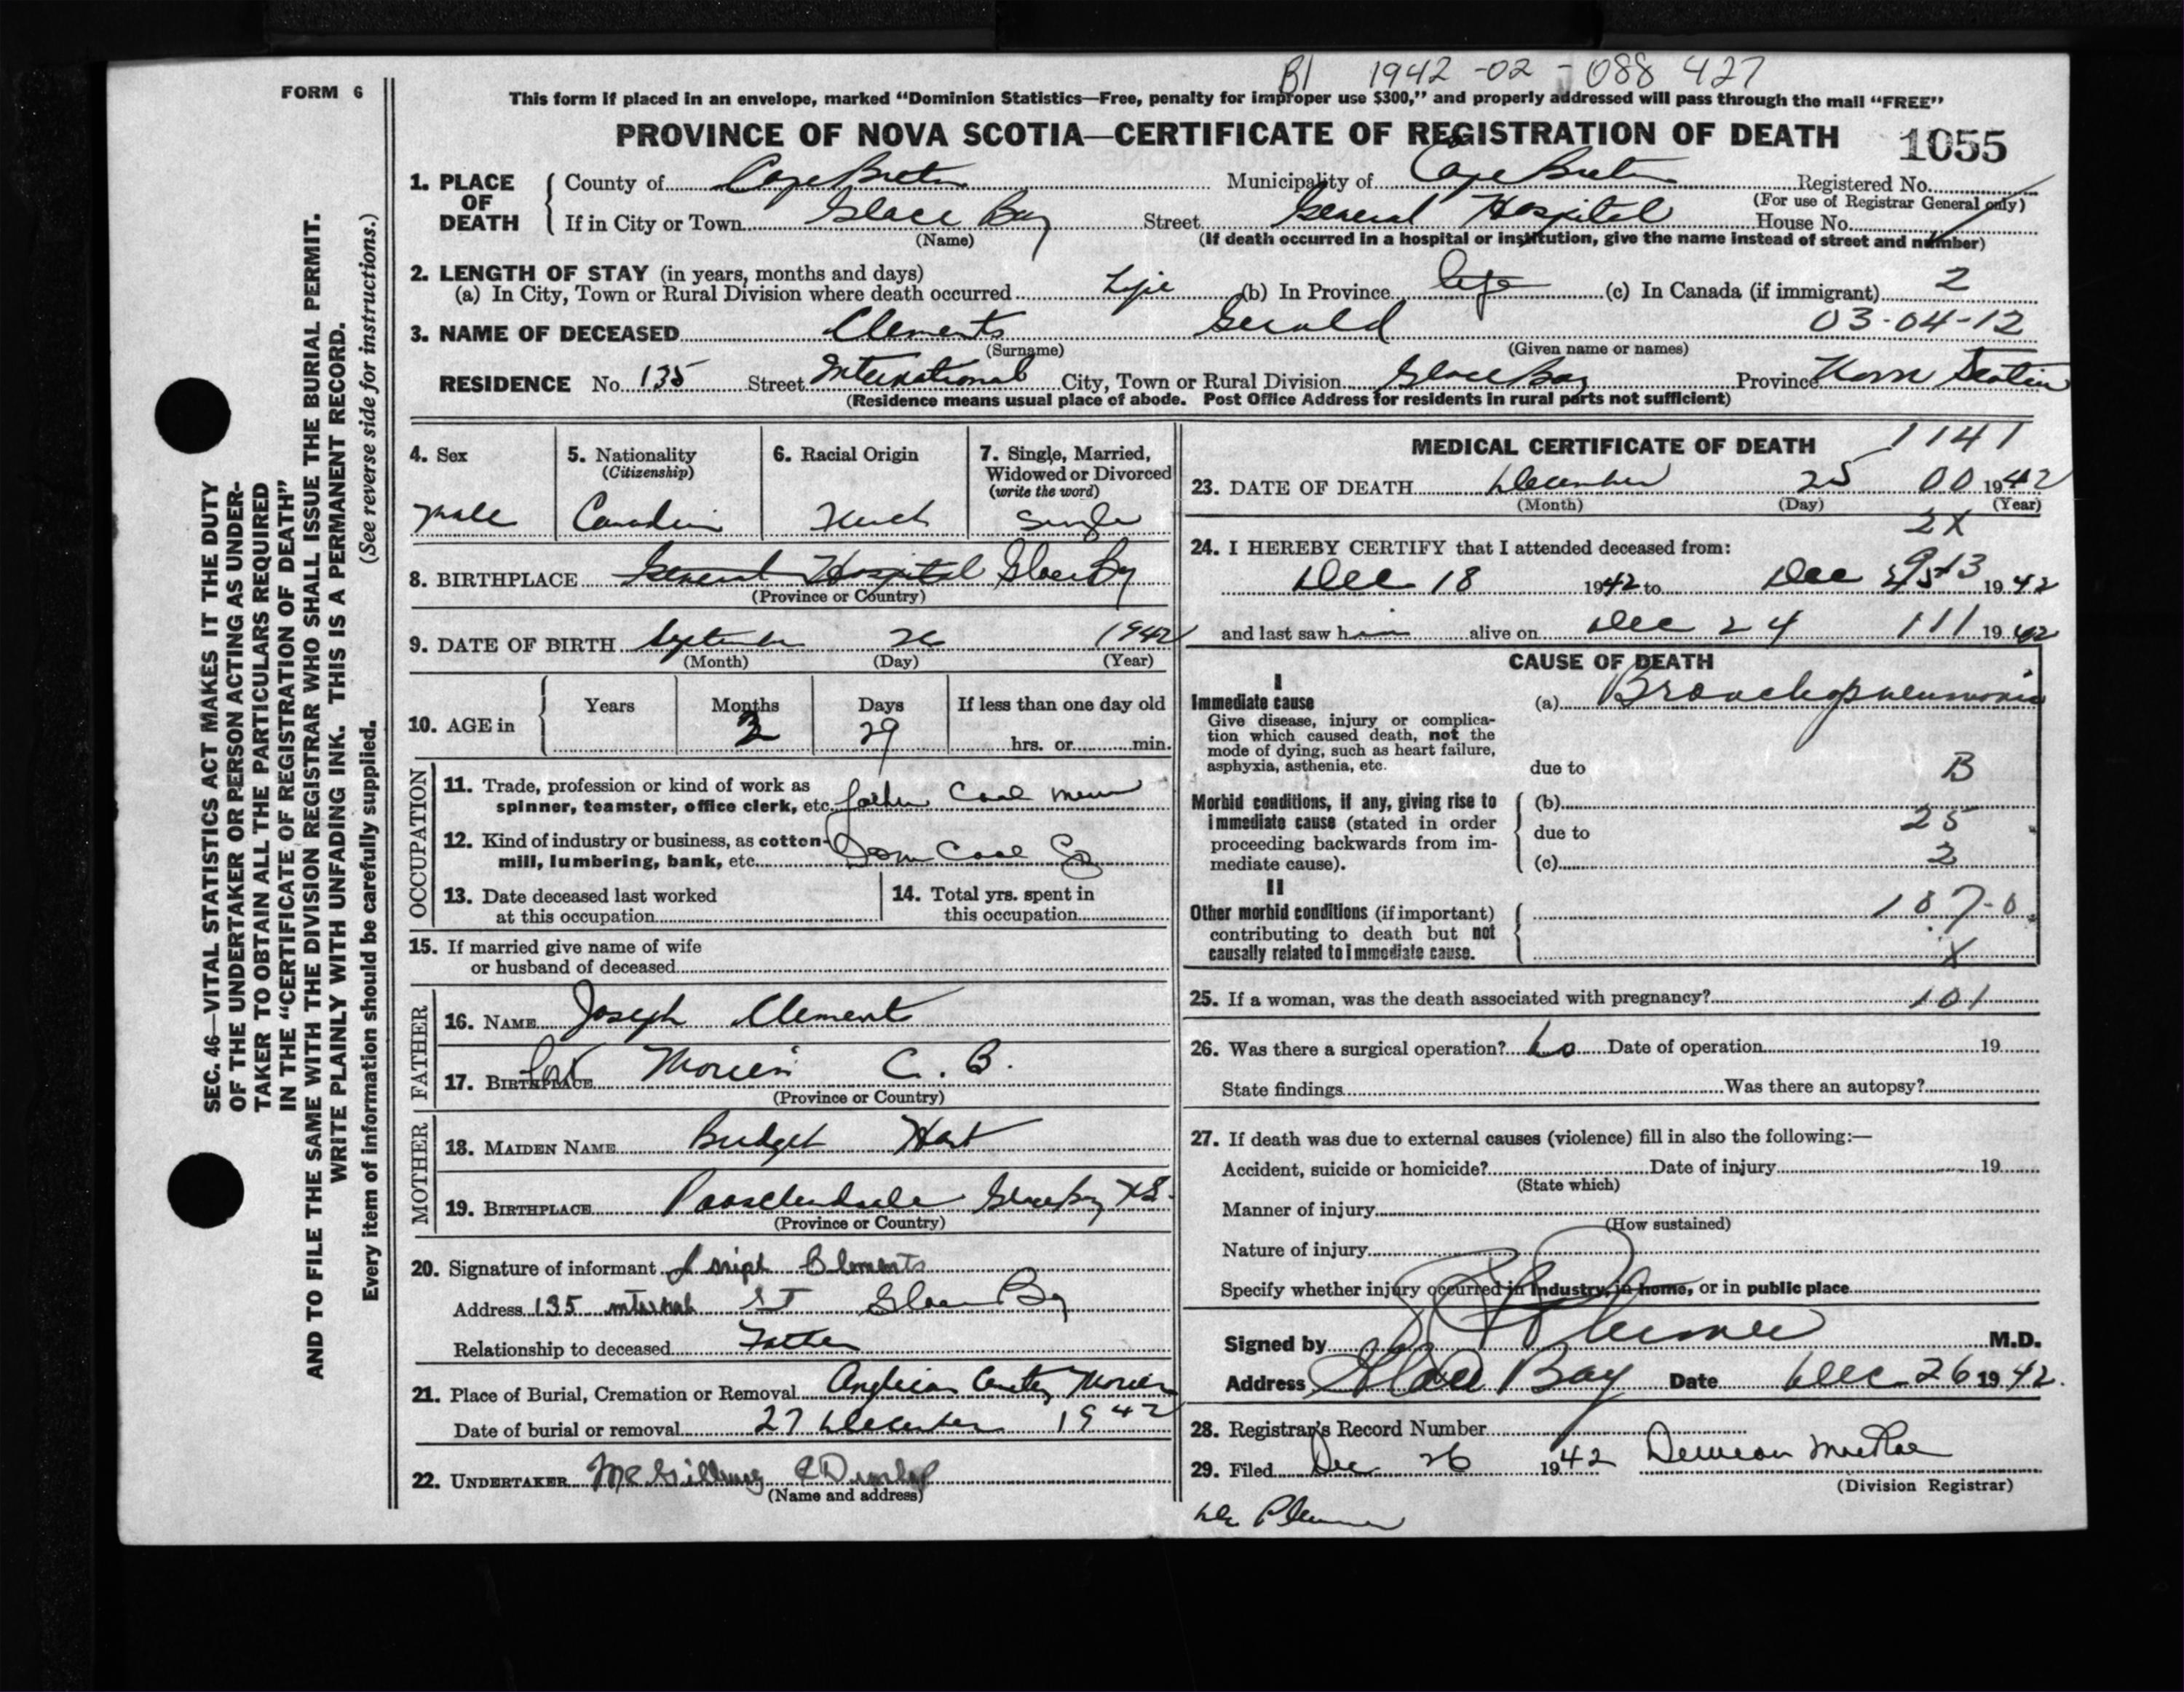 B1 1942-02-088427
FORM 6
This form if placed in an envelope, marked “Dominion Statistics—Free, penalty for improper use $300,” and properly addressed will pass through the mail “FREE”
PROVINCE OF NOVA SCOTIA—CERTIFICATE OF REGISTRATION OF DEATH 1055
1. PLACE OF DEATH County of Cape Breton Municipality of Cape Breton Registered No.
(For use of Registrar General only)
If in City or Town Glace Bay Street General Hospital House No.
(Name) (If death occurred in a hospital or institution, give the name instead of street and number)
2. LENGTH OF STAY (in years, months and days)
(a) In City, Town or Rural Division where death occurred Life (b) In Province Life (c) In Canada (if immigrant) 2
3. NAME OF DECEASED Clements Gerald 03-04-12
(Surname) (Given name or names)
RESIDENCE No. 135 Street International City, Town or Rural Division Glace Bay Province Nova Scotia
(Residence means usual place of abode. Post Office Address for residents in rural parts not sufficient)
4. Sex 5. Nationality (Citizenship) 6. Racial Origin 7. Single, Married, Widowed or Divorced (write the word)
Male Canadian Single
8. BIRTHPLACE General Hospital Glace Bay
(Province or Country)
9. DATE OF BIRTH September 26 1942
(Month) (Day) (Year)
10. AGE in Years Months Days If less than one day old
2 29 hrs. or min.
OCCUPATION
11. Trade, profession or kind of work as spinner, teamster, office clerk, etc. father Coal
12. Kind of industry or business, as cotton-mill, lumbering, bank, etc. Dom Coal Co
13. Date deceased last worked at this occupation
14. Total yrs. spent in this occupation
15. If married give name of wife or husband of deceased
FATHER
16. NAME Joseph Clements
17. BIRTHPLACE Port Morien C. B.
(Province or Country)
MOTHER
18. MAIDEN NAME Bridget Hart
19. BIRTHPLACE Passchendaele Glace Bay NS.
(Province or Country)
20. Signature of informant Joseph Clements
Address 135 ST Glace Bay
Relationship to deceased Father
21. Place of Burial, Cremation or Removal Anglican Morien
Date of burial or removal 27 December 1942
22. UNDERTAKER McGillivray & Dunlap
(Name and address)
MEDICAL CERTIFICATE OF DEATH 1141
23. DATE OF DEATH December 25 00 1942
(Month) (Day) (Year)
2X
24. I HEREBY CERTIFY that I attended deceased from:
Dec 18 1942 to Dec 25 1942
and last saw him alive on Dec 24 111 1942
CAUSE OF DEATH
I
Immediate cause (a) Bronchopneumonia
Give disease, injury or complication which caused death, not the mode of dying, such as heart failure, asphyxia, asthenia, etc.
due to B
Morbid conditions, if any, giving rise to immediate cause (stated in order proceeding backwards from immediate cause).
(b)
due to 25
(c) 2
II
Other morbid conditions (if important) contributing to death but not causally related to immediate cause.
107-0
X
25. If a woman, was the death associated with pregnancy? 101
26. Was there a surgical operation? No Date of operation 19
State findings Was there an autopsy?
27. If death was due to external causes (violence) fill in also the following:—
Accident, suicide or homicide? Date of injury 19
(State which)
Manner of injury
(How sustained)
Nature of injury
Specify whether injury occurred in industry, in home, or in public place
Signed by M.D.
Address Glace Bay Date Dec 26 1942.
28. Registrar's Record Number
29. Filed Dec 26 1942 MacRae
(Division Registrar)
SEC. 46—VITAL STATISTICS ACT MAKES IT THE DUTY
OF THE UNDERTAKER OR PERSON ACTING AS UNDER-
TAKER TO OBTAIN ALL THE PARTICULARS REQUIRED
IN THE “CERTIFICATE OF REGISTRATION OF DEATH”
AND TO FILE THE SAME WITH THE DIVISION REGISTRAR WHO SHALL ISSUE THE BURIAL PERMIT.
WRITE PLAINLY WITH UNFADING INK. THIS IS A PERMANENT RECORD.
(See reverse side for instructions.)
Every item of information should be carefully supplied.